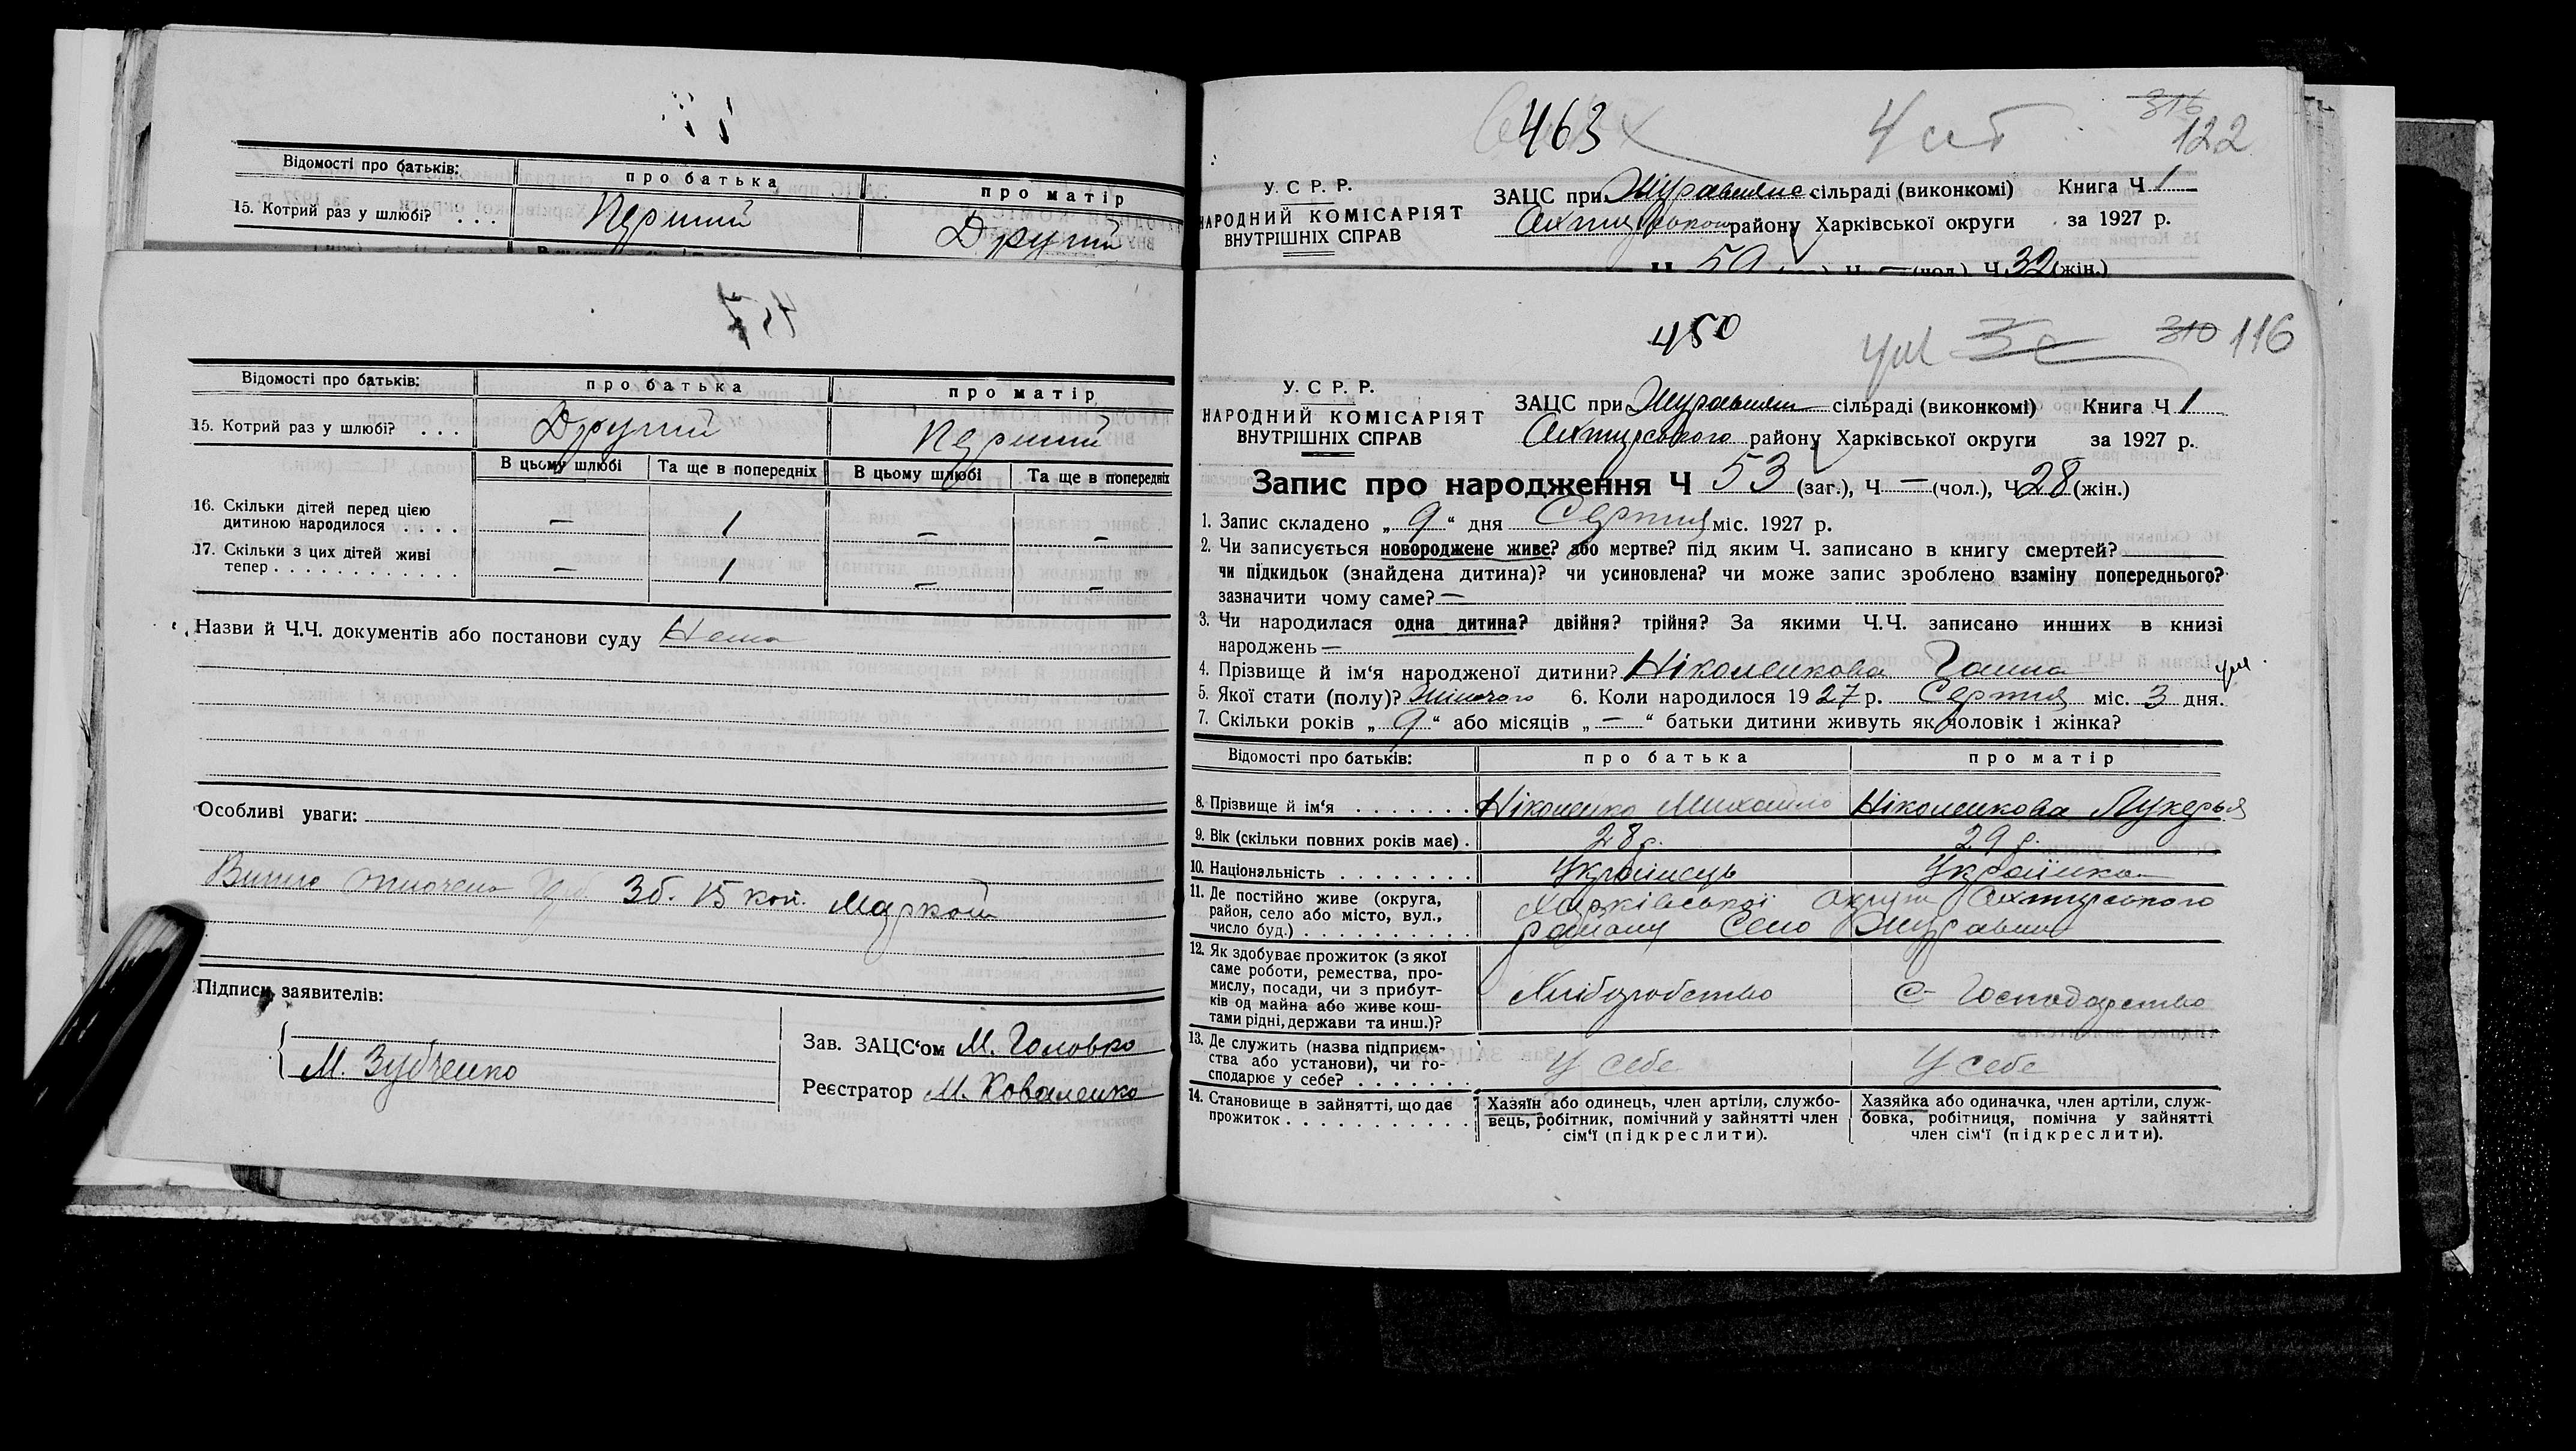 Відомості про батьків: про батька про матір
15. Котрий раз у шлюбі? . . . Перший Другий
457
Відомості про батьків: про батька про матір
15. Котрий раз у шлюбі? . . . Другий Перший
В цьому шлюбі Та ще в попередніх В цьому шлюбі Та ще в попередніх
16. Скільки дітей перед цією
дитиною народилося . . . . . — 1 — —
17. Скільки з цих дітей живі
тепер . . . . . . . . . . . . . — 1 — —
Назви й Ч.Ч. документів або постанови суду Нема
Особливі уваги:
3б. 15 коп. Маркой
Підписи заявителів:
М. Зубченко
Зав. ЗАЦС'ом М. Головко
Реєстратор М. Коваленко
463 4 316
122
У. С. Р. Р.
НАРОДНИЙ КОМІСАРІЯТ
ВНУТРІШНІХ СПРАВ
ЗАЦС при Журавлене сільраді (виконкомі) Книга Ч 1
Охтирського району Харківської округи за 1927 р.
Ч 59 Ч — (чол.) Ч 32 (жін.)
450 310 116
У. С. Р. Р.
НАРОДНИЙ КОМІСАРІЯТ
ВНУТРІШНІХ СПРАВ
ЗАЦС при Журавлен сільраді (виконкомі) Книга Ч 1
Охтирського району Харківської округи за 1927 р.
Запис про народження Ч 53 (заг.), Ч — (чол.), Ч 28 (жін.)
1. Запис складено „ 9 “ дня Серпня міс. 1927 р.
2. Чи записується новороджене живе? або мертве? під яким Ч. записано в книгу смертей?
чи підкидьок (знайдена дитина)? чи усиновлена? чи може запис зроблено взаміну попереднього?
зазначити чому саме? —
3. Чи народилася одна дитина? двійня? трійня? За якими Ч.Ч. записано инших в книзі
народжень —
4. Прізвище й ім'я народженої дитини? Ніколенкова Ганна
5. Якої стати (полу)? Жіночого 6. Коли народилося 1927 р. Серпня міс. 3 дня.
7. Скільки років „ 9 “ або місяців „ — “ батьки дитини живуть як чоловік і жінка?
Відомості про батьків: про батька про матір
8. Прізвище й ім'я . . . . . . . Ніколенко Михайло Ніколенкова Лукерья
9. Вік (скільки повних років має) . 28 р. 29 р.
10. Національність . . . . . . . . Українець Українка
11. Де постійно живе (округа,
район, село або місто, вул.,
число буд.) . . . . . . . . . .
Харківської округи Охтирського
району Село Журавли
12. Як здобуває прожиток (з якої
саме роботи, ремества, про-
мислу, посади, чи з прибут-
ків од майна або живе кош-
тами рідні, держави та инш.)?
Хліборобство С- Господарство
13. Де служить (назва підприєм-
ства або установи), чи го-
сподарює у себе? . . . . . . .
У себе У себе
14. Становище в зайнятті, що дає
прожиток . . . . . . . . . . .
Хазяїн або одинець, член артіли, службо-
вець, робітник, помічний у зайнятті член
сім'ї (підкреслити).
Хазяйка або одиначка, член артіли, служ-
бовка, робітниця, помічна у зайнятті
член сім'ї (підкреслити).